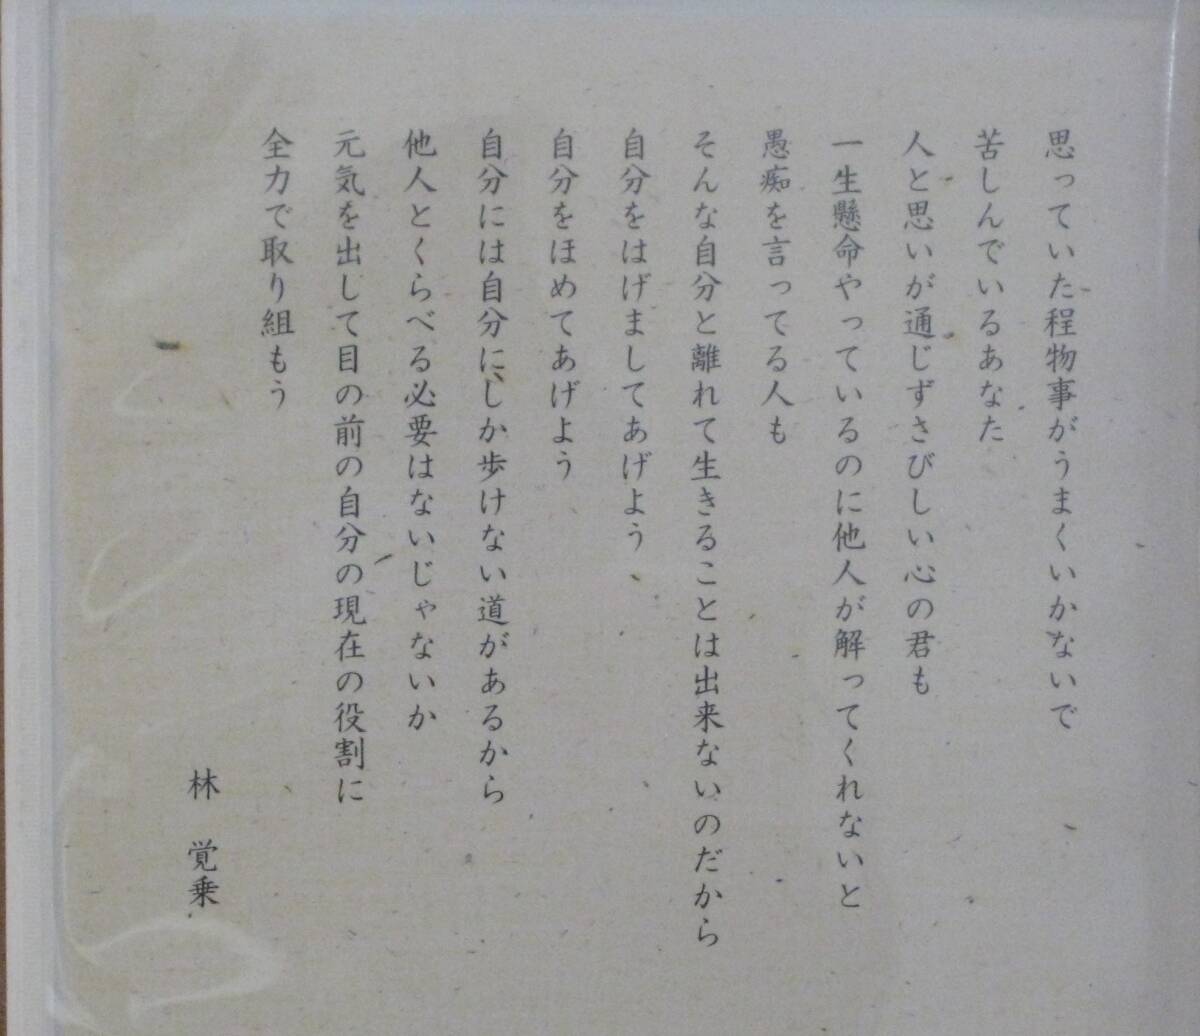 思っていた程物事がうまくいかないで
苦しんでいるあなた
人と思いが通じずさびしい心の君も
一生懸命やっているのに他人が解ってくれないと
愚痴を言ってる人も
そんな自分と離れて生きることは出来ないのだから
自分をはげましてあげよう
自分をほめてあげよう
自分には自分にしか歩けない道があるから
他人とくらべる必要はないじゃないか
元気を出して目の前の自分の現在の役割に
全力で取り組もう
林 覚乗